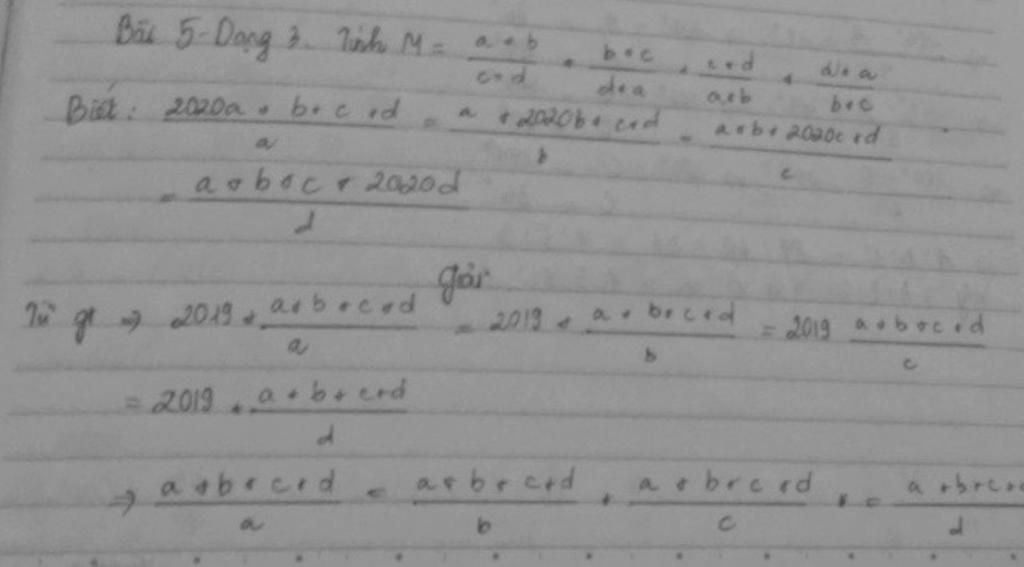 Bài 5 - Dạng 3. Tính M = (a + b)/(c + d) + (b + c)/(d + a) + (c + d)/(a + b) + (d + a)/(b + c)
Biết: (2020a + b + c + d)/a = (a + 2020b + c + d)/b = (a + b + 2020c + d)/c
= (a + b + c + 2020d)/d
Giải
Từ gt ⇒ 2019 + (a + b + c + d)/a = 2019 + (a + b + c + d)/b = 2019 (a + b + c + d)/c
= 2019 + (a + b + c + d)/d
⇒ (a + b + c + d)/a = (a + b + c + d)/b + (a + b + c + d)/c + = (a + b + c +)/d